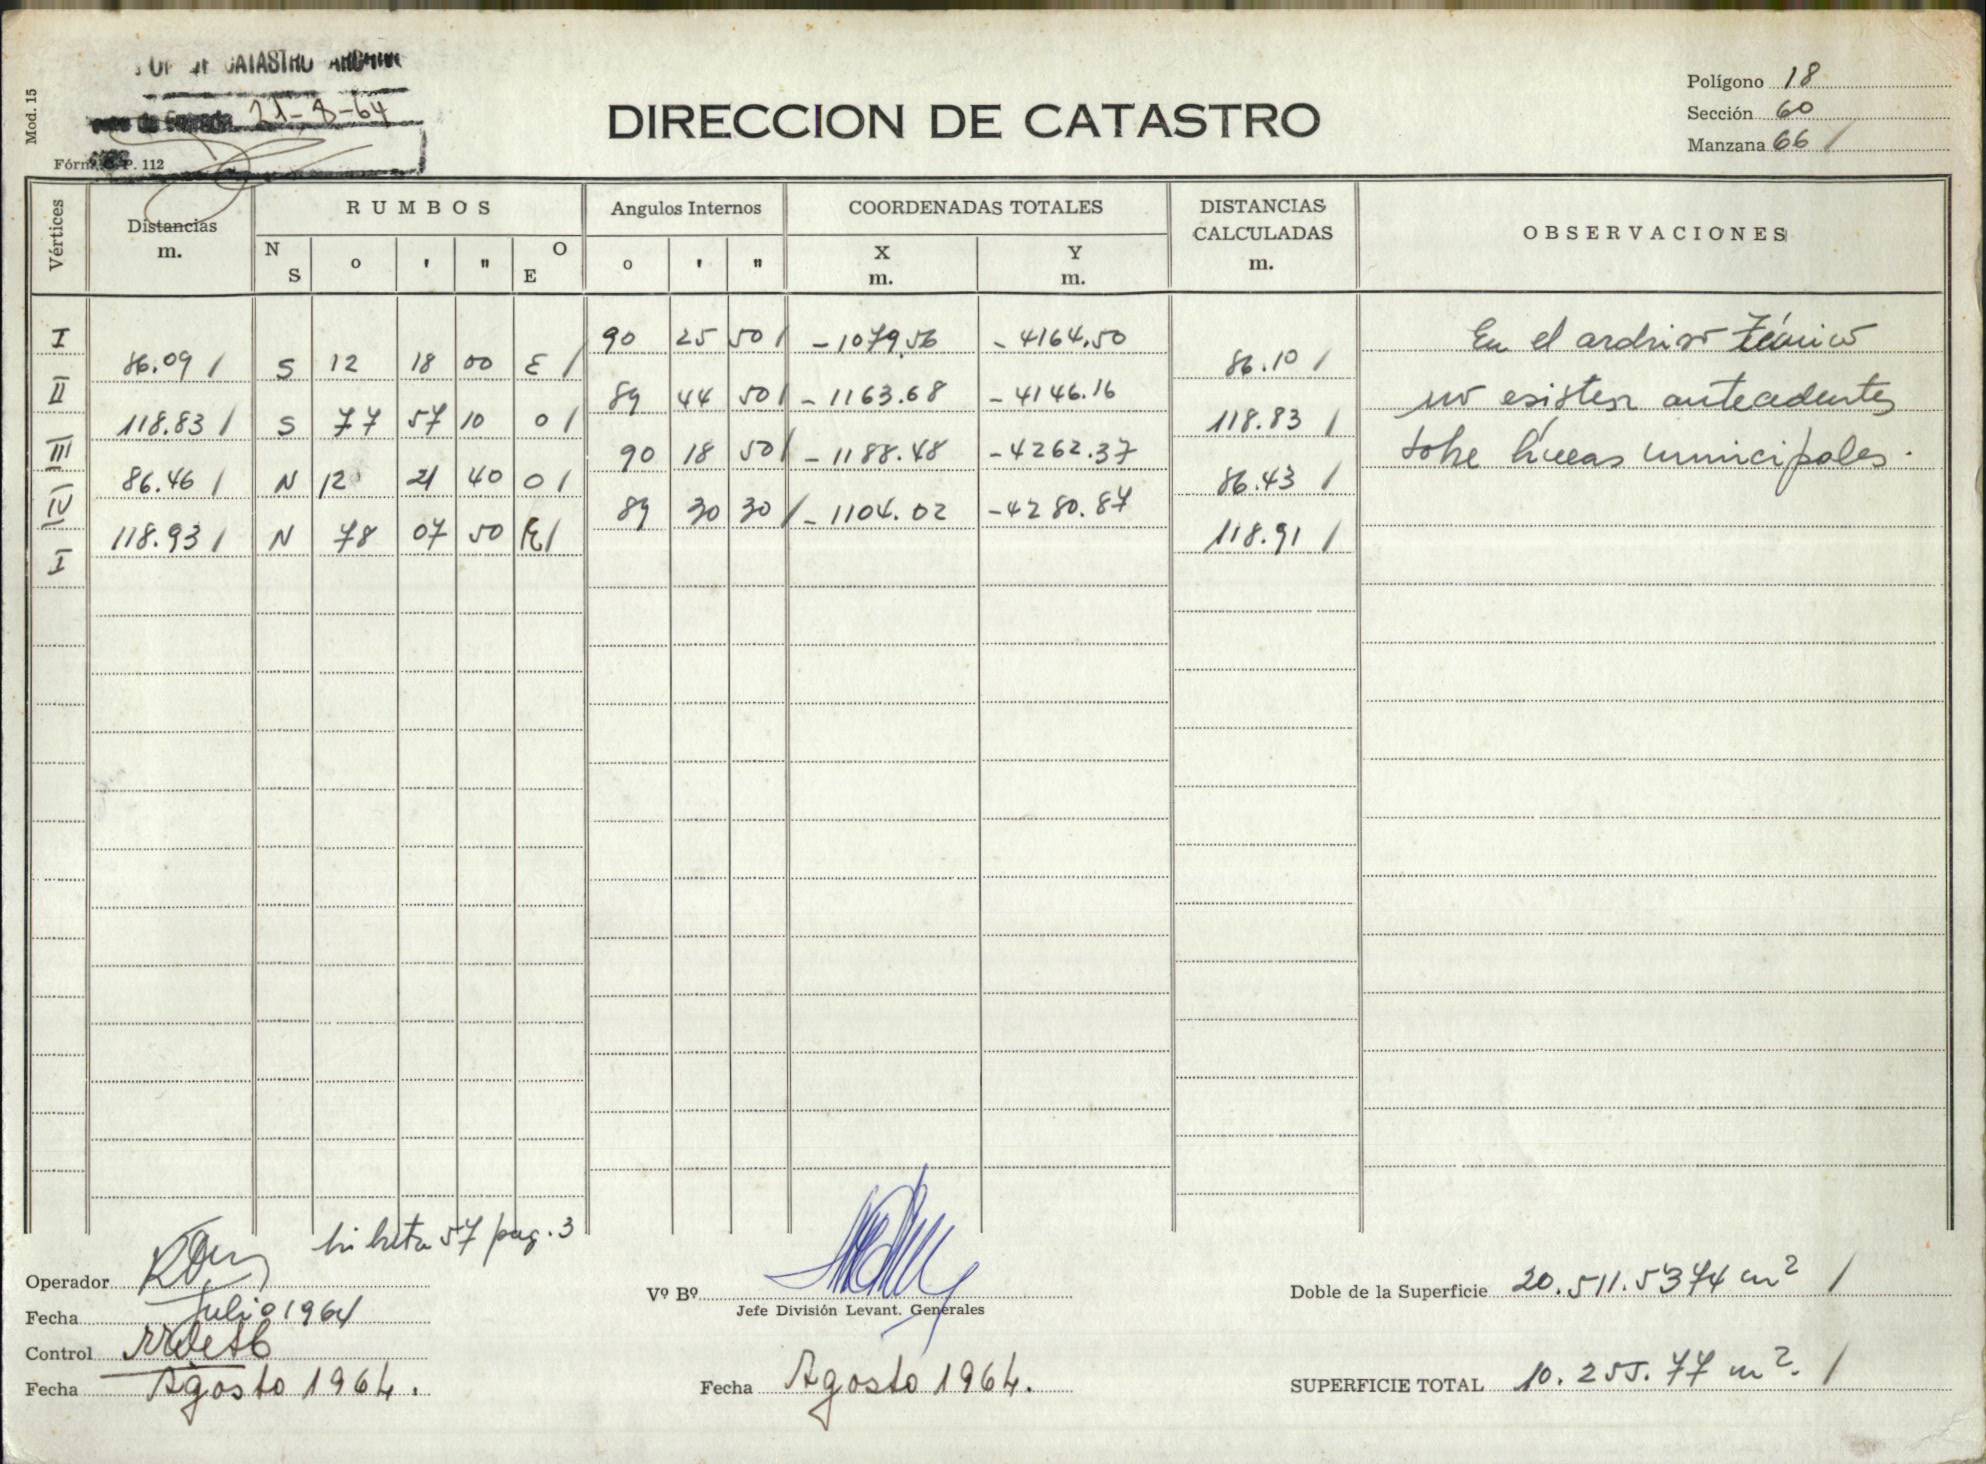 CATASTRO
21-8-64
Mod. 15
P. 112
DIRECCION DE CATASTRO
Polígono 18
Sección 60
Manzana 66 /
Vértices
Distancias m.
RUMBOS
N S
° ' "
O E
Angulos Internos
° ' "
COORDENADAS TOTALES
X m.
Y m.
DISTANCIAS CALCULADAS m.
OBSERVACIONES
I 90 25 50 / -1079.56 -4164.50
86.09 / S 12 18 00 E / 86.10 /
II 89 44 50 / -1163.68 -4146.16
118.83 / S 77 57 10 O / 118.83 /
III 90 18 50 / -1188.48 -4262.37
86.46 / N 12 21 40 O / 86.43 /
IV 89 30 30 / -1104.02 -4280.87
118.93 / N 78 07 50 E / 118.91 /
I
En el archivo técnico
no existen antecedentes
sobre líneas municipales.
libreta 57 pag. 3
Operador
Fecha Julio 1964
Control
Fecha Agosto 1964.
Vº Bº
Jefe División Levant. Generales
Fecha Agosto 1964.
Doble de la Superficie 20.511.5374 m² /
SUPERFICIE TOTAL 10.255.77 m². /